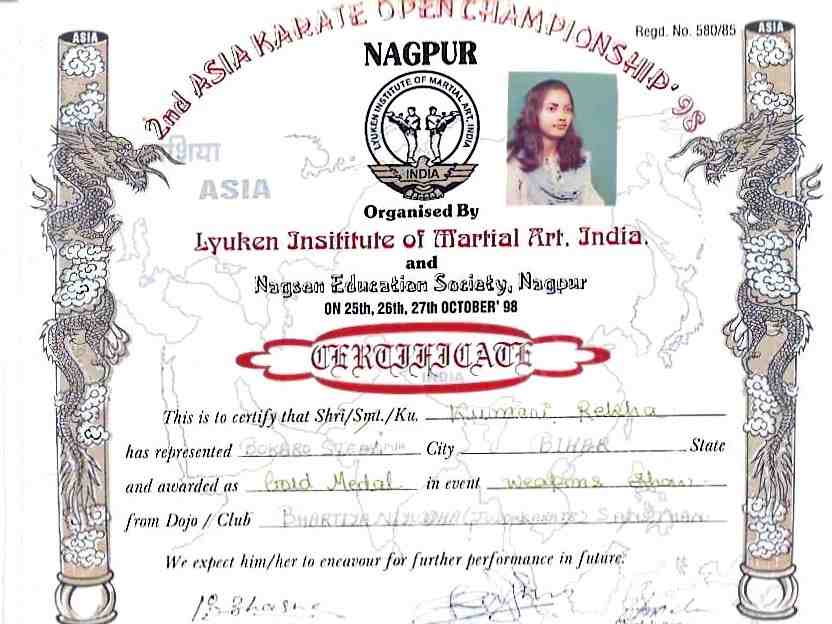 2nd ASIA KARATE OPEN CHAMPIONSHIP' 98
Regd. No. 580/85
ASIA
ASIA
NAGPUR
LYUKEN INSTITUTE OF MARTIAL ART, INDIA
INDIA
शिया
ASIA
Organised By
Lyuken Insititute of Martial Art. India.
and
Nagsen Education Society, Nagpur
ON 25th, 26th, 27th OCTOBER' 98
CERTIFICATE
INDIA
This is to certify that Shri/Smt./Ku. Kumari Rekha
has represented BOKARO STEEL City BIHAR State
and awarded as Gold Medal in event Weapons Show
from Dojo / Club BHARTIYA
We expect him/her to enaevour for further performance in future.